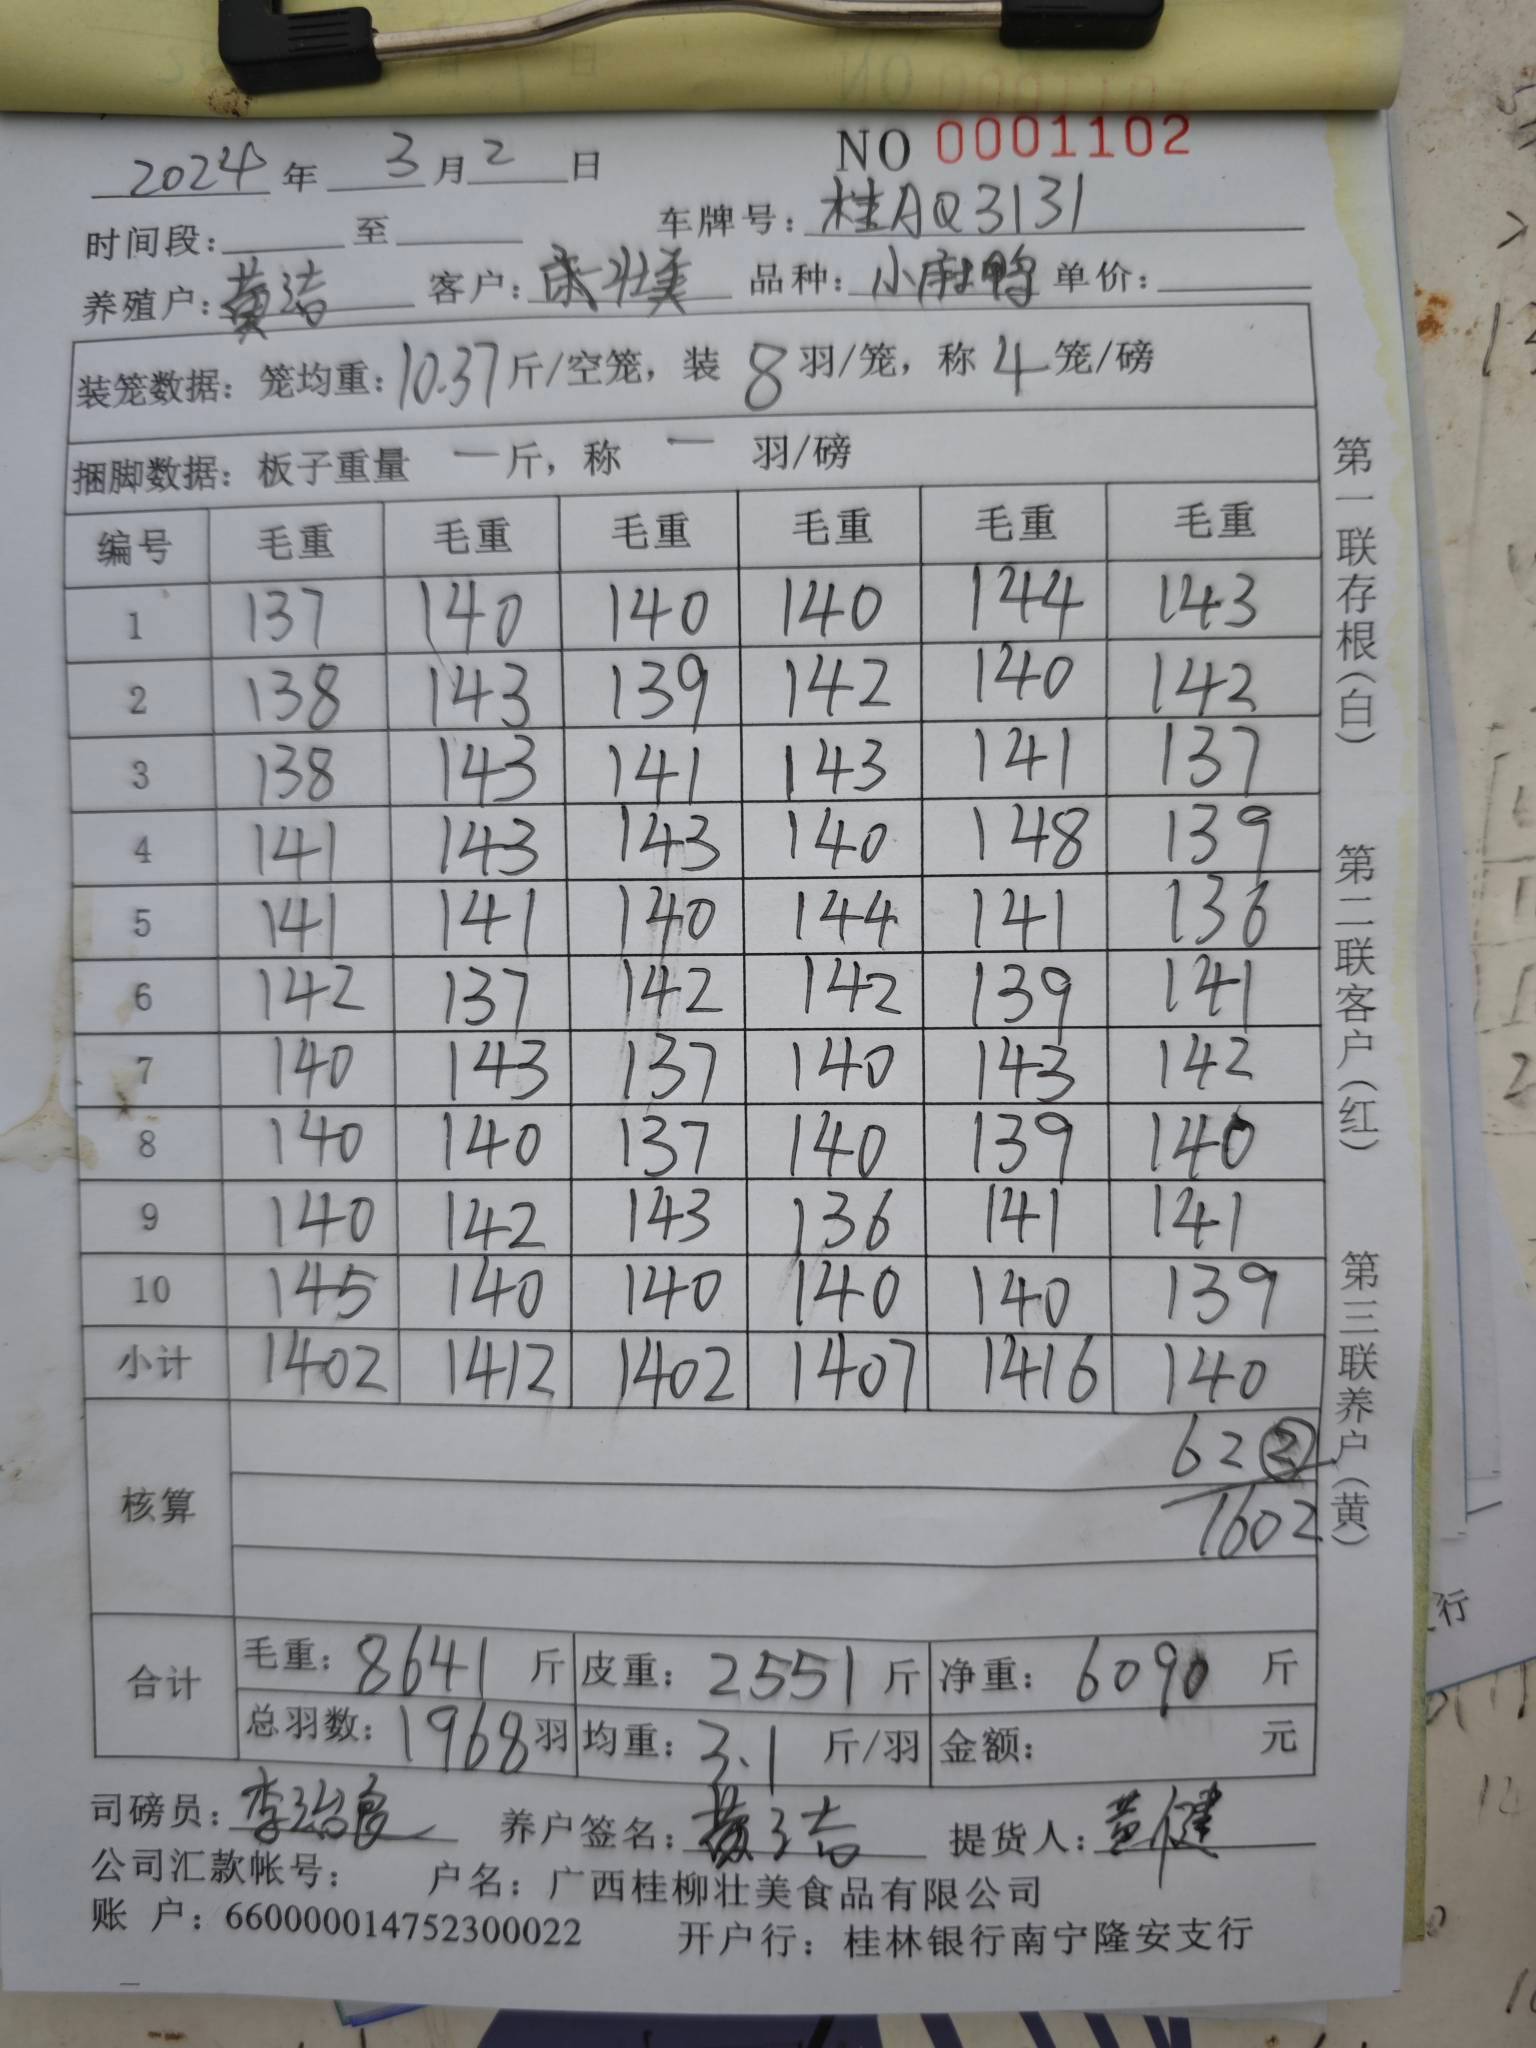 NO 0001102
2024 年 3 月 2 日
时间段: 至 车牌号: 桂AQ3131
养殖户: 黄洁 客户: 壮美 品种: 小麻鸭 单价:
装笼数据: 笼均重: 10.37 斤/空笼, 装 8 羽/笼, 称 4 笼/磅
捆脚数据: 板子重量 一 斤, 称 一 羽/磅
编号 毛重 毛重 毛重 毛重 毛重 毛重
1 137 140 140 140 144 143
2 138 143 139 142 140 142
3 138 143 141 143 141 137
4 141 143 143 140 148 139
5 141 141 140 144 141 136
6 142 137 142 142 139 141
7 140 143 137 140 143 142
8 140 140 137 140 139 140
9 140 142 143 136 141 141
10 145 140 140 140 140 139
小计 1402 1412 1402 1407 1416 140
62 ②
核算
1602
合计 毛重: 8641 斤 皮重: 2551 斤 净重: 6090 斤
总羽数: 1968 羽 均重: 3.1 斤/羽 金额: 元
司磅员: 李治良 养户签名: 黄洁 提货人: 黄健
公司汇款帐号: 户名: 广西桂柳壮美食品有限公司
账 户: 660000014752300022 开户行: 桂林银行南宁隆安支行
第一联存根(白) 第二联客户(红) 第三联养户(黄)